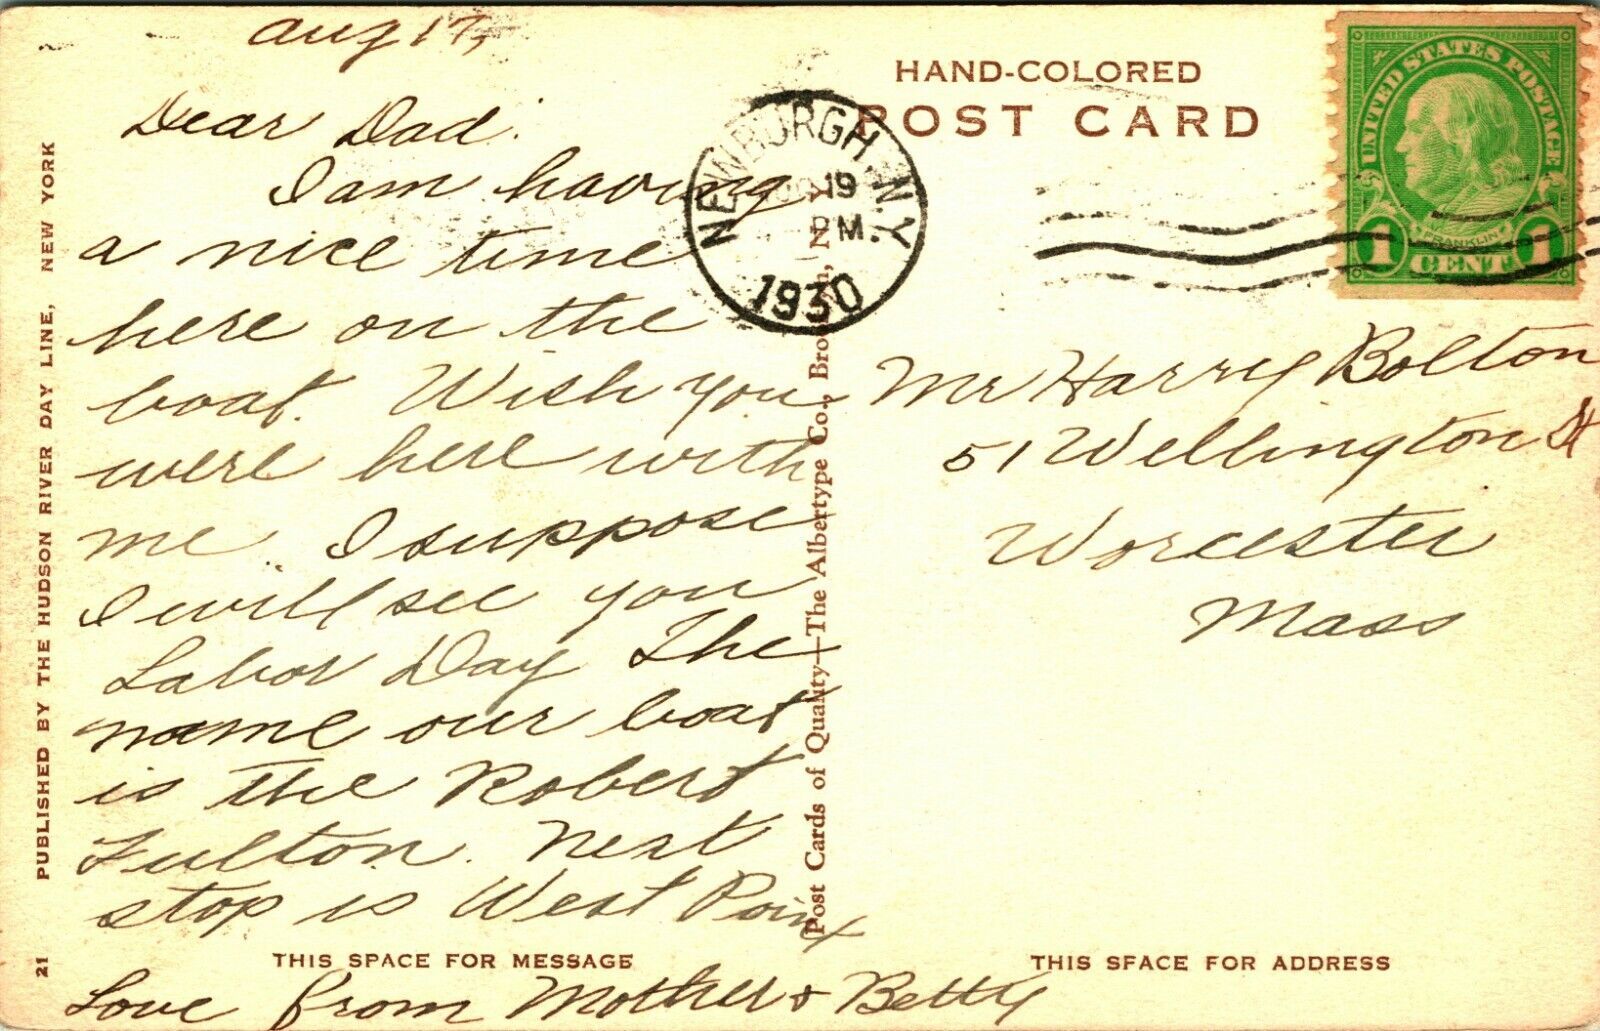 Aug 17,
Dear Dad.
I am having
a nice time
here on the
boat. Wish you
were here with
me. I suppose
I will see you
Labor Day The
name our boat
is the Robert
Fulton. Next
stop is West Point
Love from Mother & Betty
THIS SPACE FOR MESSAGE
21 PUBLISHED BY THE HUDSON RIVER DAY LINE, NEW YORK
Post Cards of Quality—The Albertype Co., Brooklyn, N.Y.
HAND-COLORED
POST CARD
NEWBURGH, N.Y.
19
PM.
1930
UNITED STATES POSTAGE
FRANKLIN
1 CENT 1
Mr Harry Bolton
51 Wellington St
Worcester
Mass
THIS SPACE FOR ADDRESS